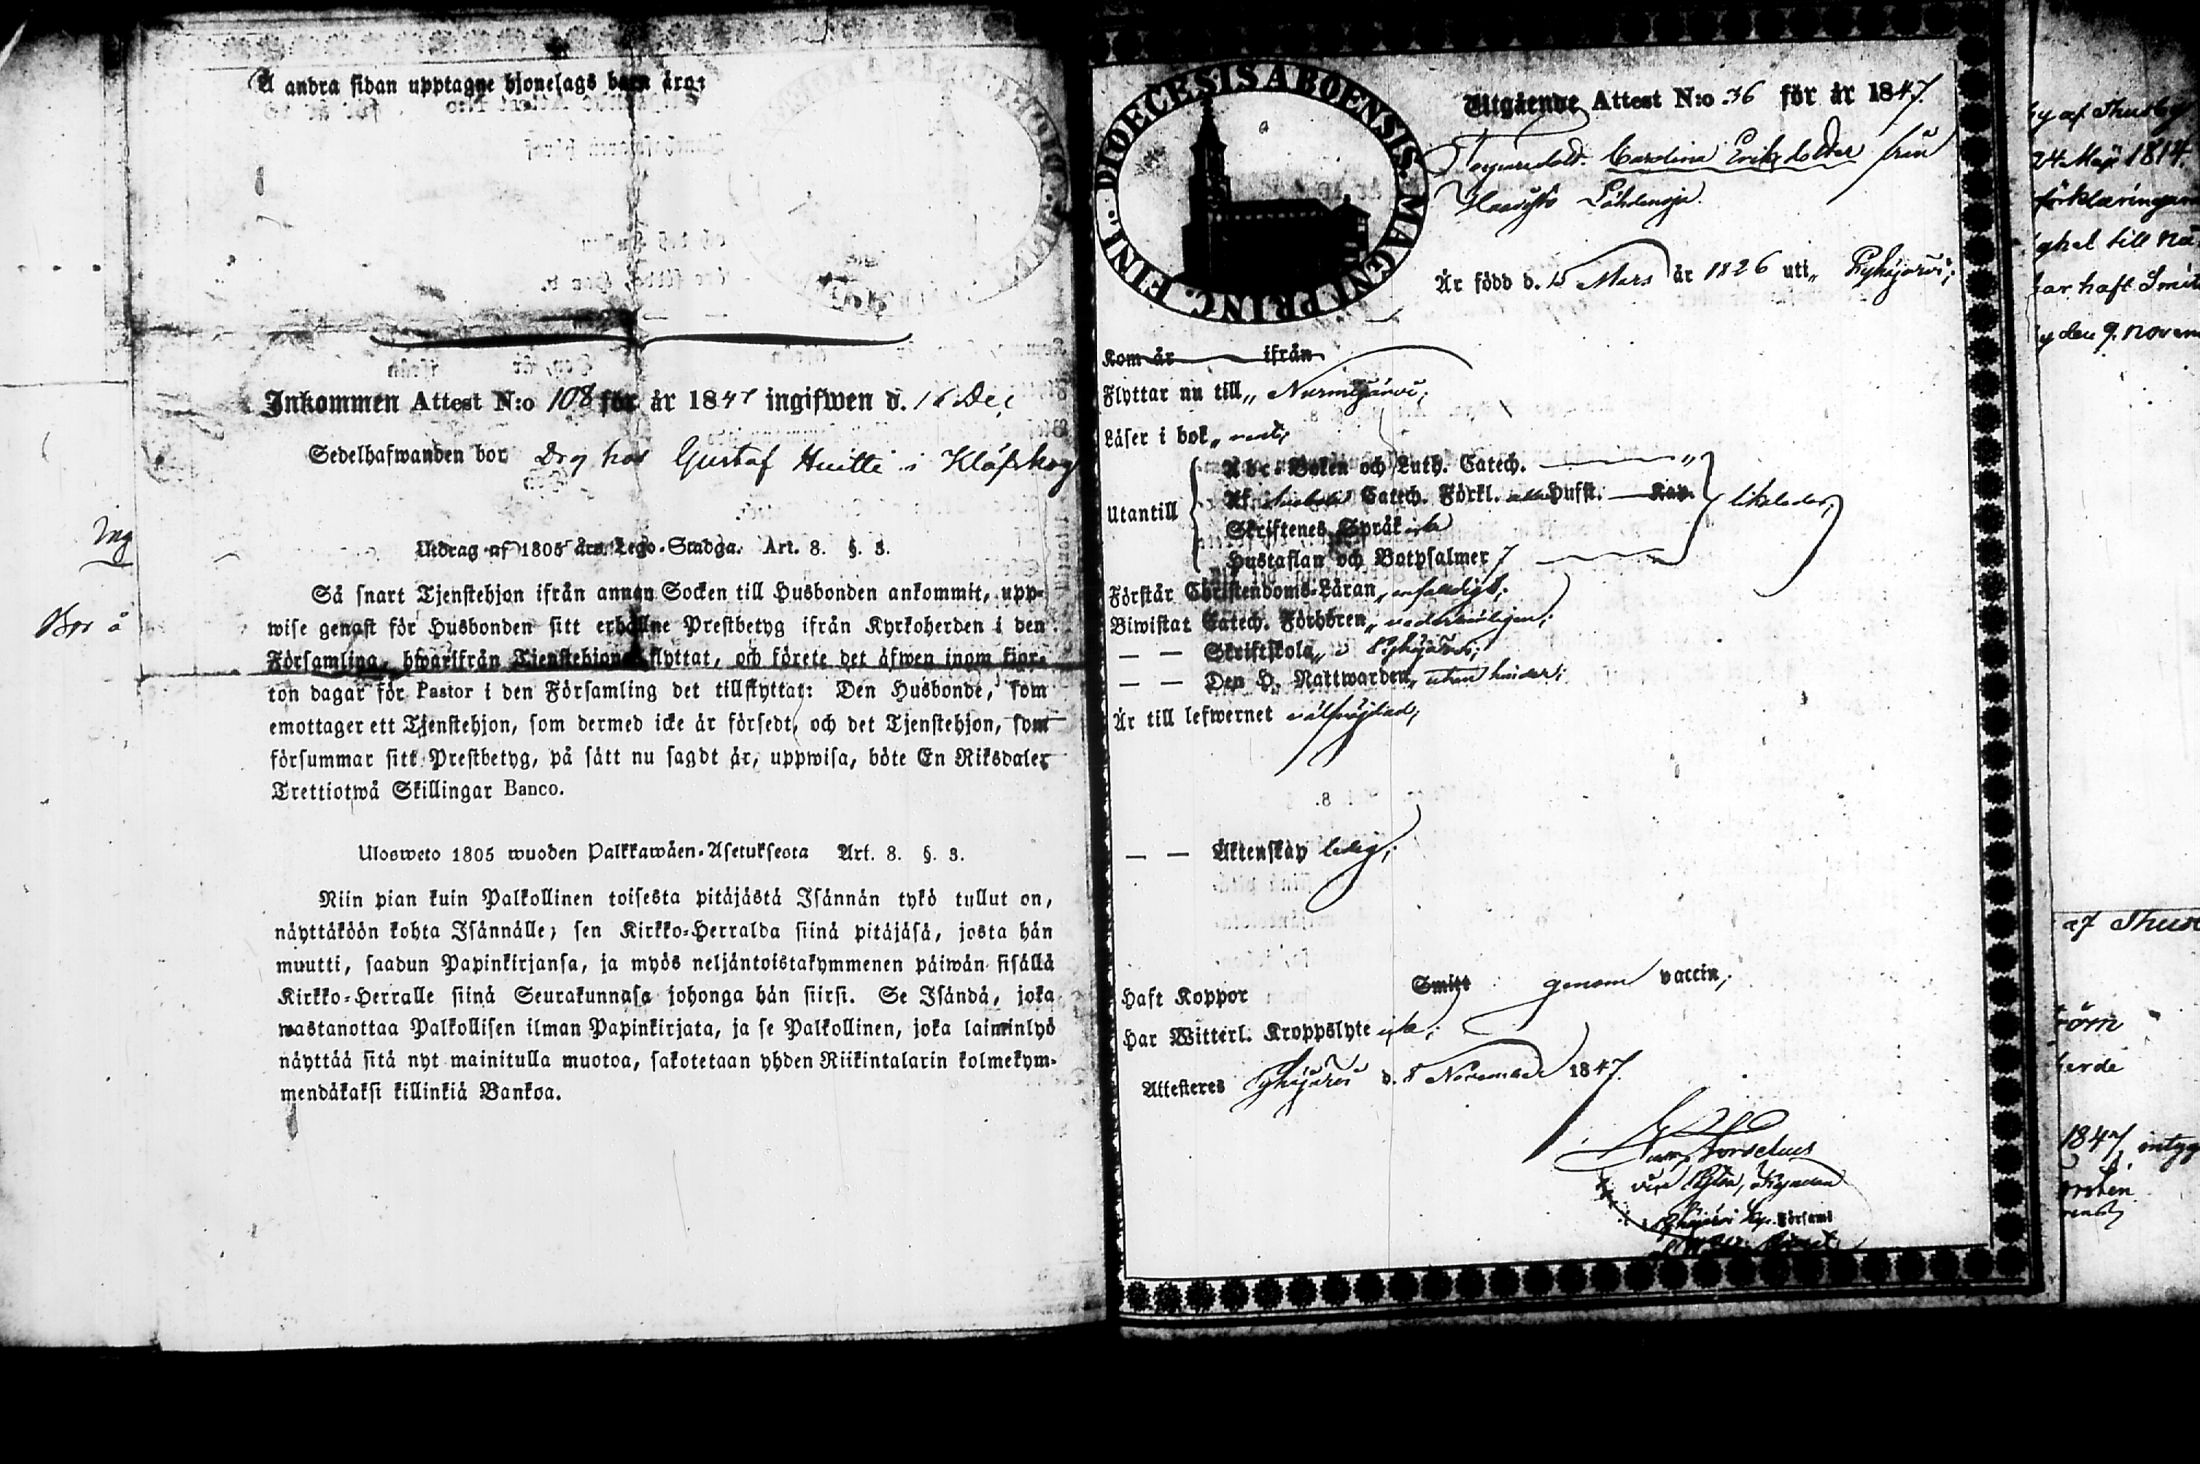 Å andra sidan upptagne hjonelags barn äro:
Inkommen Attest N:o 108 för år 1847 ingifwen d. 16 Dec
Sedelhafwanden bor Drg hos Gustaf Huitti i Kläfskog
Utdrag af 1805 års Lego-Stadga. Art. 8. §. 3.
Så snart Tjenstehjon ifrån annan Socken till Husbonden ankommit, upp-
wise genast för Husbonden sitt erhållne Prestbetyg ifrån Kyrkoherden i den
Församling, hwarifrån Tjenstehjonet flyttat, och förete det äfwen inom fjor-
ton dagar för Pastor i den Församling det tillflyttat: Den Husbonde, som
emottager ett Tjenstehjon, som dermed icke är försedt, och det Tjenstehjon, som
försummar sitt Prestbetyg, på sätt nu sagdt är, uppwisa, böte En Riksdaler
Trettiotwå Skillingar Banco.
Ulosweto 1805 wuoden Palkkawäen-Asetuksesta Art. 8. §. 3.
Niin pian kuin Palkollinen toisesta pitäjästä Isännän tykö tullut on,
näyttäköön kohta Isännälle, sen Kirkko-Herralda siinä pitäjäsä, josta hän
muutti, saadun Papinkirjansa, ja myös neljäntoistakymmenen päiwän sisällä
Kirkko-Herralle siinä Seurakunnasa johonga hän siirsi. Se Isändä, joka
wastanottaa Palkollisen ilman Papinkirjata, ja se Palkollinen, joka laiminlyö
näyttää sitä nyt mainitulla muotoa, sakotetaan yhden Riikintalarin kolmekym-
mendäkaksi killinkiä Bankoa.
ing
Bor å
DIOECESIS ABOENSIS. MAGNI PRINC. FINL.
Utgående Attest N:o 36 för år 1847.
Carolina Eriksdotter från
Är född d. 15 Mars år 1826 uti Pyhäjärvi;
Kom år ifrån
Flyttar nu till Nurmijärvi;
Läser i bok
Utantill
Abc-Boken och Luth. Catech.
Af Catech. Förkl. Hufst. Kap.
Skriftenes Språk
Hustaflan och Botpsalmer 7
likaledes;
Förstår Christendoms-Läran enfaldigt;
Biwistat Catech. Förhören vederbörligen;
— — Skriftskola i Pyhäjärvi;
— — Den H. Nattwarden utan hinder;
Är till lefwernet välfrejdad;
— — Äktenskap ledig;
Haft Koppor Smitt genom vaccin;
Har Witterl. Kroppslyte
Attesteres Pyhäjärvi d. 8 November 1847.
Församl
y af Thusby
24 Maji 1814.
förklaringar
ghet till na
har haft Smit
y den 9. novem
af Thus
törn
herde
1847 intyg